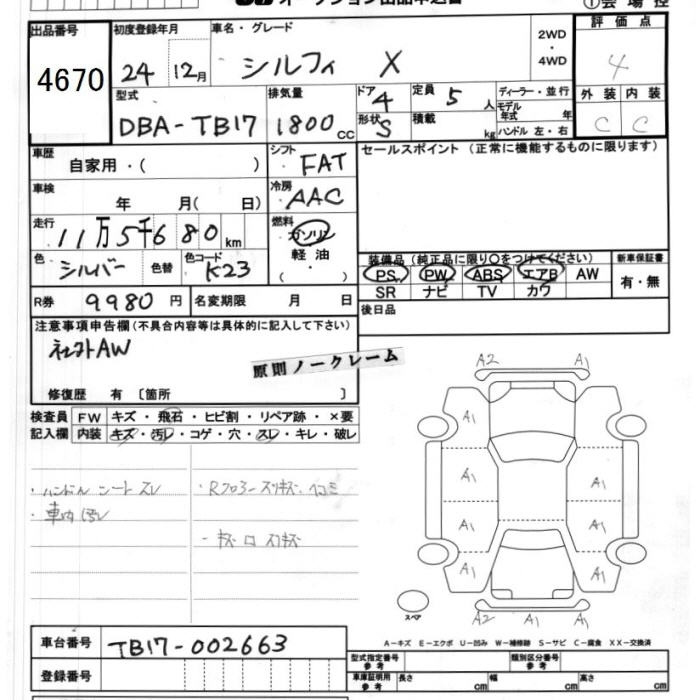 オークション出品申込書
①会場控
出品番号 初度登録年月 車名・グレード 2WD・4WD 評価点
4670 24 12月 シルフィ X 4
型式 排気量 ドア 定員 ディーラー・並行 外装 内装
DBA-TB17 1800cc 4 5人 モデル年式 年 C C
形状 S 積載 kg ハンドル 左・右
車歴 自家用・( ) シフト FAT セールスポイント(正常に機能するものに限ります)
車検 年 月( 日) 冷房 AAC
走行 11万5千680km 燃料 ガソリン 軽油
色 シルバー 色替 色コード K23
装備品(純正品に限り〇をつけてください) 新車保証書
PS PW ABS エアB AW 有・無
SR ナビ TV カワ
R券 9980円 名変期限 月 日 後日品
注意事項申告欄(不具合内容等は具体的に記入して下さい)
社外AW
原則ノークレーム
修復歴 有〔箇所 〕
検査員 FW キズ・飛石・ヒビ割・リペア跡・×要
記入欄 内装 キズ・汚レ・コゲ・穴・スレ・キレ・破レ
・ハンドル シート スレ
・車内 汚レ
・Rフロアースリキズ、ヘコミ
A2 A1
A1
A1 A1
A1 A1
A1 A1
A2 A1 A1
スペア
A-キズ E-エクボ U-凹み W-補修跡 S-サビ C-腐食 XX-交換済
車台番号 TB17-002663
登録番号
型式指定番号 参考 類別区分番号 参考
車庫証明用 参考 長さ cm 幅 cm 高さ cm